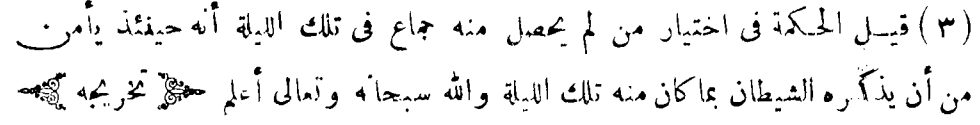 (٣) قيل الحكمة فى اختيار من لم يحصل منه جماع فى تلك الليلة أنه حينئذ يأمن
من أن يذكره الشيطان بما كان منه تلك الليلة والله سبحانه وتعالى أعلم ﴿ تخريجه ﴾